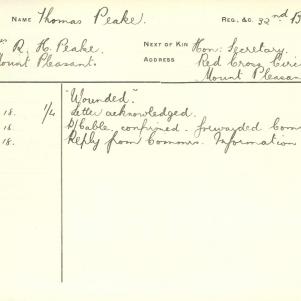 NAME Thomas Peake. REG. &C. 32nd B
R. H. Peake. NEXT OF KIN Hon: Secretary.
Mount Pleasant. ADDRESS Red Cross Circ
Mount Pleasan
"Wounded."
18. 1/4 Letter acknowledged.
16. Cable confirmed. forwarded Com
18. Reply from Commrs. Information